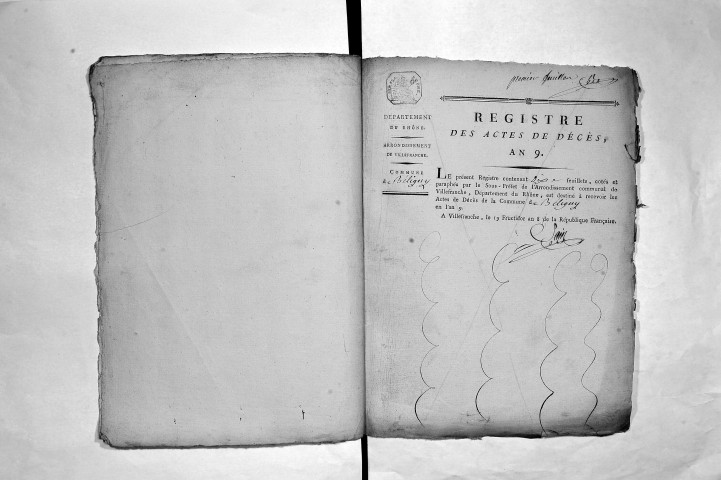 premier feuillet
REGISTRE
DES ACTES DE DÉCÈS,
AN 9.
DEPARTEMENT
DU RHÔNE.
ARRONDISSEMENT
DE VILLEFRANCHE.
COMMUNE
de Béligny
LE présent Registre contenant feuillets, cotés et
paraphés par le Sous-Préfet de l'Arrondissement communal de
Villefranche, Département du Rhône, est destiné à recevoir les
Actes de Décès de la Commune de Béligny
en l'an 9.
A Villefranche, le 19 Fructidor an 8 de la République Française.